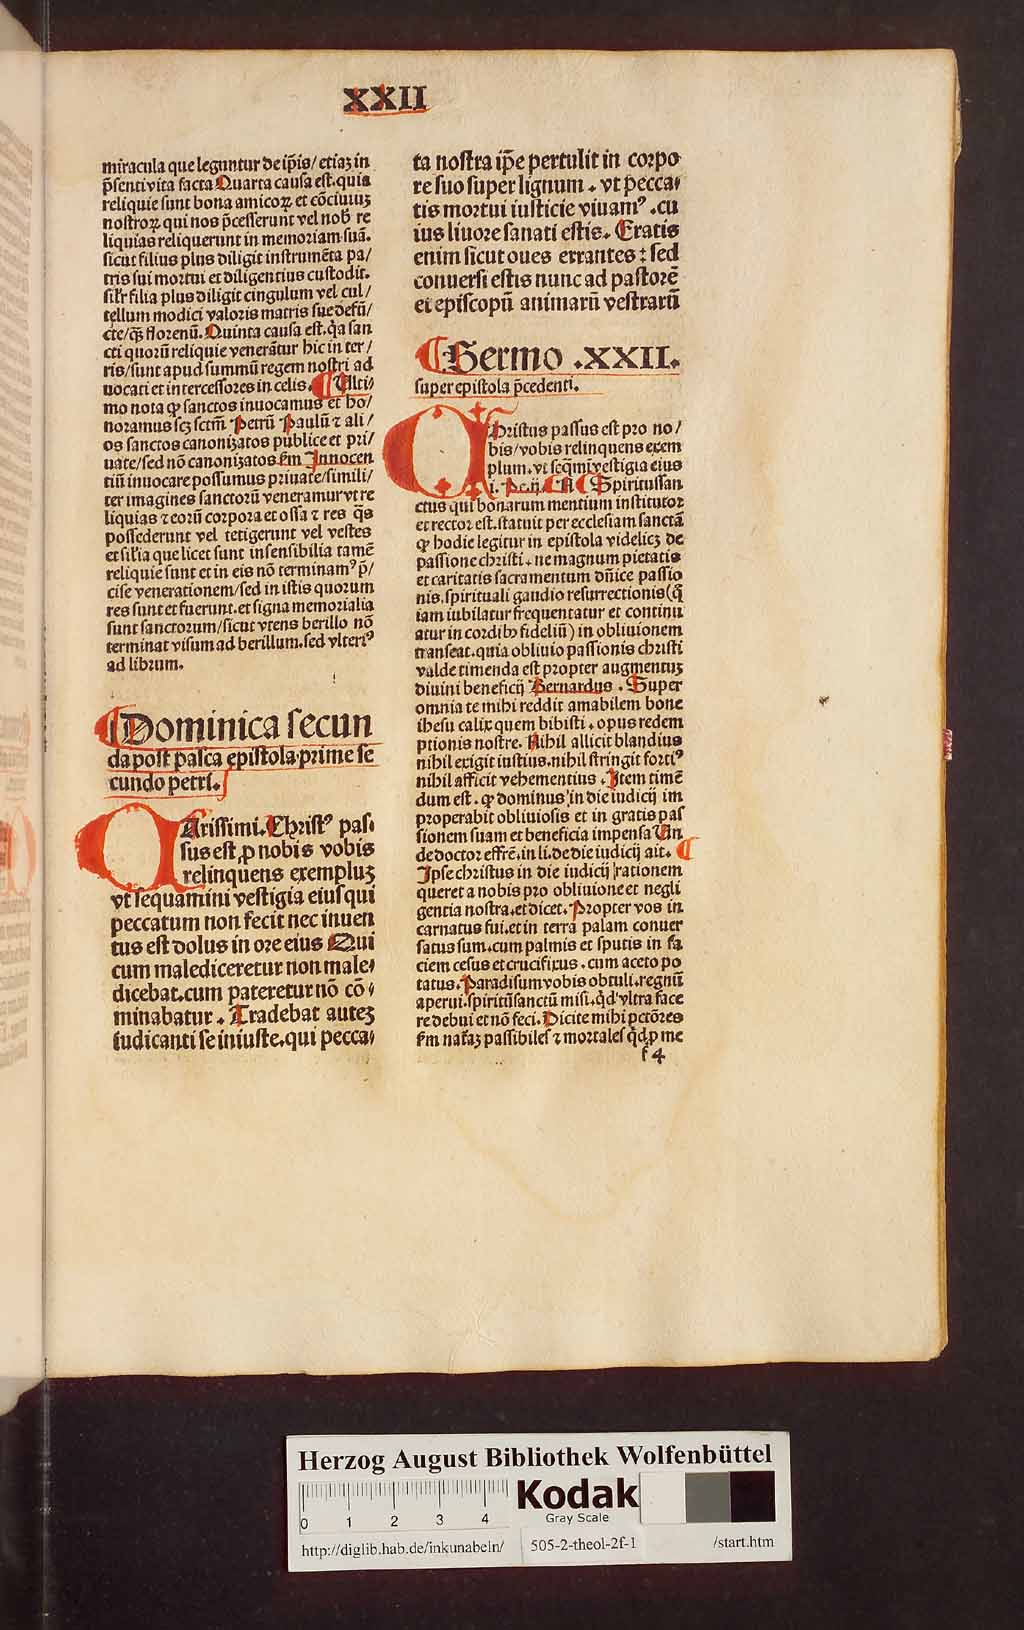 XXII
miracula que leguntur de ip̄is/ etiaꝫ in
p̄senti vita facta Quarta causa est. quia
reliquie sunt bona amicoꝝ et cōciuiuꝫ
nostroꝝ qui nos p̄cesserunt vel nob̄ re
liquias reliquerunt in memoriam suā.
sicut filius plus diligit instrumēta pa/
tris sui mortui et diligentius custodit.
sil̄r filia plus diligit cingulum vel cul/
tellum modici valoris matris sue defū/
cte/ qꝫ̄ florenū. Quinta causa est. q̄a san
cti quorū reliquie venerātur hic in ter/
ris/ sunt apud summū regem nostri ad
uocati et intercessores in celis. ¶ Ulti/
mo nota ꝙ sanctos inuocamus et ho/
noramus scꝫ sctm̄ Petrū Paulū ⁊ ali/
os sanctos canonizatos publice et pri/
uate/ sed nō canonizatos km̄ Innocen
tiū inuocare possumus priuate/ simili/
ter imagines sanctorū veneramur vt re
liquias ⁊ eorū corpora et ossa ⁊ res q̄s
possederunt vel tetigerunt vel vestes
et sil̄ia que licet sunt insensibilia tamē
reliquie sunt et in eis nō terminamꝰ p̄/
cise venerationem/ sed in istis quorum
res sunt et fuerunt. et signa memorialia
sunt sanctorum/ sicut vtens berillo nō
terminat visum ad berillum. sed vlteriꝰ
ad librum.
¶ Dominica secun
da post pasca epistola prime se
cundo petri.
CArissimi. Christꝰ pas/
sus est ꝓ nobis vobis
relinquens exempluꝫ
vt sequamini vestigia eius qui
peccatum non fecit nec inuen
tus est dolus in ore eius Qui
cum malediceretur non male/
dicebat. cum pateretur nō cō/
minabatur. Tradebat auteꝫ
iudicanti se iniuste. qui pecca/
ta nostra ip̄e pertulit in corpo
re suo super lignum. vt pecca/
tis mortui iusticie viuamꝰ. cu
ius liuore sanati estis. Eratis
enim sicut oues errantes: sed
conuersi estis nunc ad pastorē
et episcopū animarū vestrarū
¶ Sermo .XXII.
super epistola p̄cedenti.
CHristus passus est pro no/
bis/ vobis relinquens exem
plum. vt seq̄mi vestigia eius
i. Pe. ij. ¶ Spiritussan
ctus qui bonarum mentium institutor
et rector est. statuit per ecclesiam sanctā
ꝙ hodie legitur in epistola videlicꝫ de
passione christi. ne magnum pietatis
et caritatis sacramentum dn̄ice passio
nis. spirituali gaudio resurrectionis (q̄
iam iubilatur frequentatur et continu
atur in cordibꝰ fideliū) in obliuionem
transeat. quia obliuio passionis christi
valde timenda est propter augmentuꝫ
diuini beneficij Bernardus. Super
omnia te mihi reddit amabilem bone
ihesu calix quem bibisti. opus redem
ptionis nostre. Nihil allicit blandius
nihil exigit iustius. nihil stringit fortiꝰ
nihil afficit vehementius. Item timē
dum est. ꝙ dominus in die iudicij im
properabit obliuiosis et in gratis pas
sionem suam et beneficia impensa Un
de doctor effrē. in li. de die iudicij ait. ¶
Ipse christus in die iudicij rationem
queret a nobis pro obliuione et negli
gentia nostra. et dicet. Propter vos in
carnatus fui. et in terra palam conuer
satus sum. cum palmis et sputis in fa
ciem cesus et crucifixus. cum aceto po
tatus. Paradisum vobis obtuli. regnū
aperui. spiritūsanctū misi. q̄d vltra face
re debui et nō feci. Dicite mihi pctōres
km̄ naturaꝫ passibiles ⁊ mortales q̄d ꝓ me
f 4
Herzog August Bibliothek Wolfenbüttel
0 1 2 3 4
Kodak
Gray Scale
http://diglib.hab.de/inkunabeln/ 505-2-theol-2f-1 /start.htm